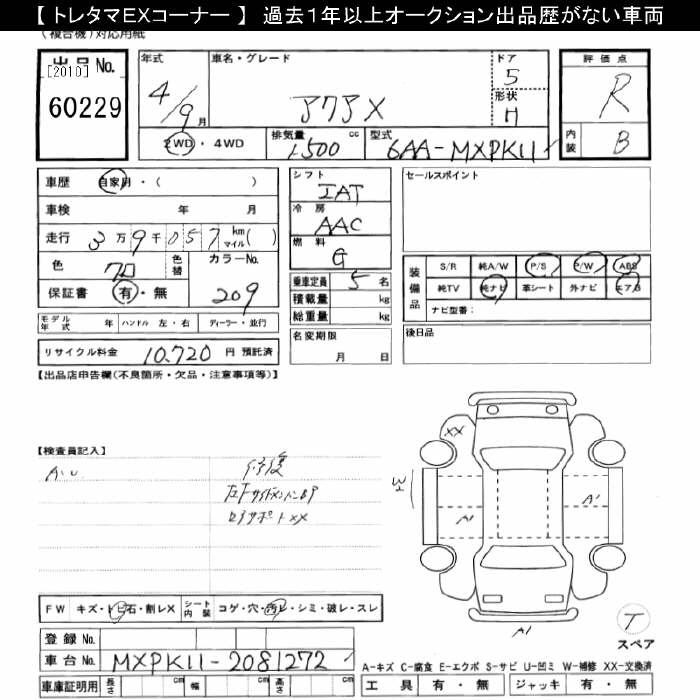 【 トレタマEXコーナー 】 過去1年以上オークション出品歴がない車両
(複合機)対応用紙
出品 No.
[2010]
60229
年式 4/9月
車名・グレード アクアX
ドア 5
形状 H
2WD・4WD
排気量 1500 cc
型式 6AA-MXPK11
評価点 R
内装 B
車歴 自家用・( )
車検 年 月
走行 3万9千057 km マイル( )
色 クロ 色替
カラーNo. 209
保証書 有・無
モデル年式 年 ハンドル 左・右 ディーラー・並行
リサイクル料金 10,720 円 預託済
シフト IAT
冷房 AAC
燃料 G
乗車定員 5 名
積載量 kg
総重量 kg
名変期限 月 日
セールスポイント
装備品 S/R 純A/W P/S P/W ABS
純TV 純ナビ 革シート 外ナビ エアB
ナビ型番:
後日品
【出品店申告欄(不良箇所・欠品・注意事項等)】
【検査員記入】
A.U
修復
XX
A'
A'
A'
T
スペア
FW キズ・トビ石・割レX シート内装 コゲ・穴・汚レ・シミ・破レ・スレ
登録 No.
車台 No. MXPK11-2081272
車庫証明用 長さ cm 幅 cm 高さ cm
A-キズ C-腐食 E-エクボ S-サビ U-凹ミ W-補修 XX-交換済
工具 有・無 ジャッキ 有・無